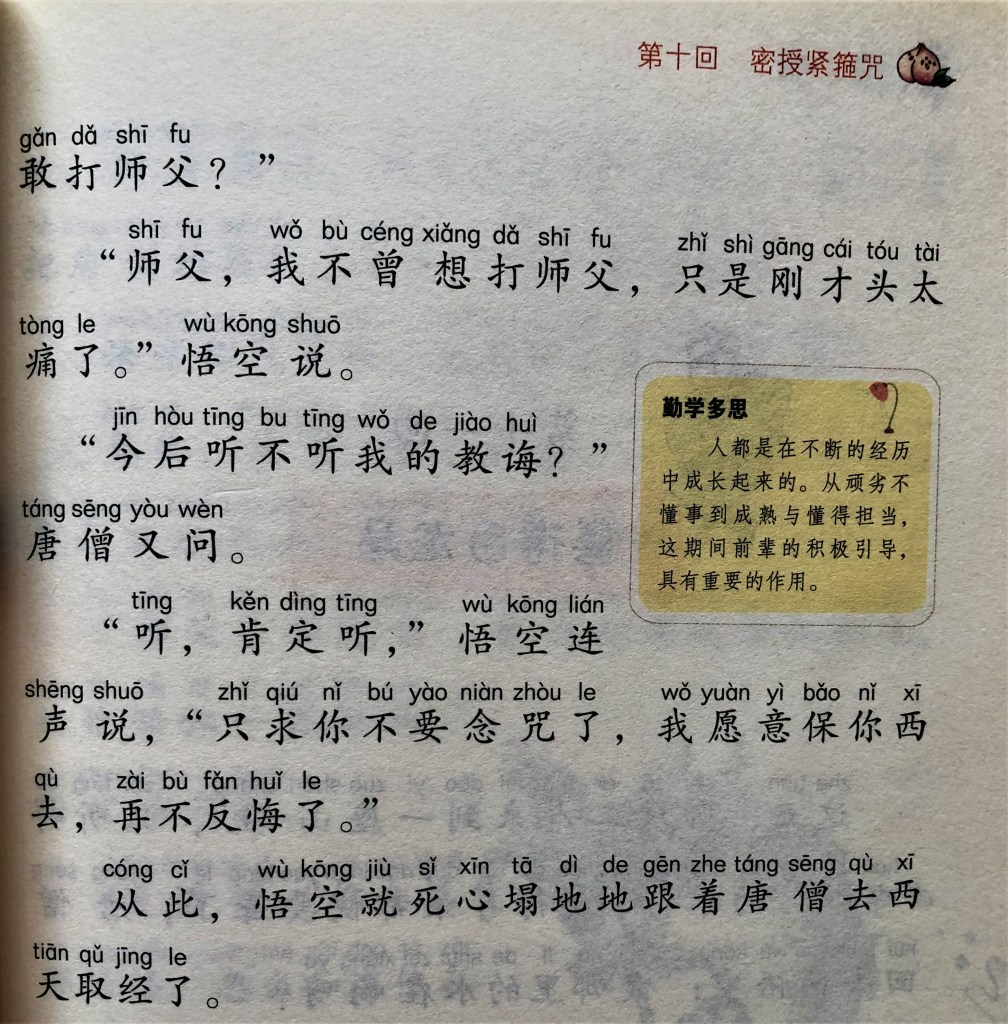 第十回 密授紧箍咒
gǎn dǎ shī fu
敢打师父？”
shī fu wǒ bù céng xiǎng dǎ shī fu zhǐ shì gāng cái tóu tài
“师父，我不曾想打师父，只是刚才头太
tòng le wù kōng shuō
痛了。”悟空说。
jīn hòu tīng bu tīng wǒ de jiào huì
“今后听不听我的教诲？”
táng sēng yòu wèn
唐僧又问。
tīng kěn dìng tīng wù kōng lián
“听，肯定听，”悟空连
shēng shuō zhǐ qiú nǐ bú yào niàn zhòu le wǒ yuàn yì bǎo nǐ xī
声说，“只求你不要念咒了，我愿意保你西
qù zài bù fǎn huǐ le
去，再不反悔了。”
cóng cǐ wù kōng jiù sǐ xīn tā dì de gēn zhe táng sēng qù xī
从此，悟空就死心塌地地跟着唐僧去西
tiān qǔ jīng le
天取经了。
勤学多思
人都是在不断的经历
中成长起来的。从顽劣不
懂事到成熟与懂得担当，
这期间前辈的积极引导，
具有重要的作用。